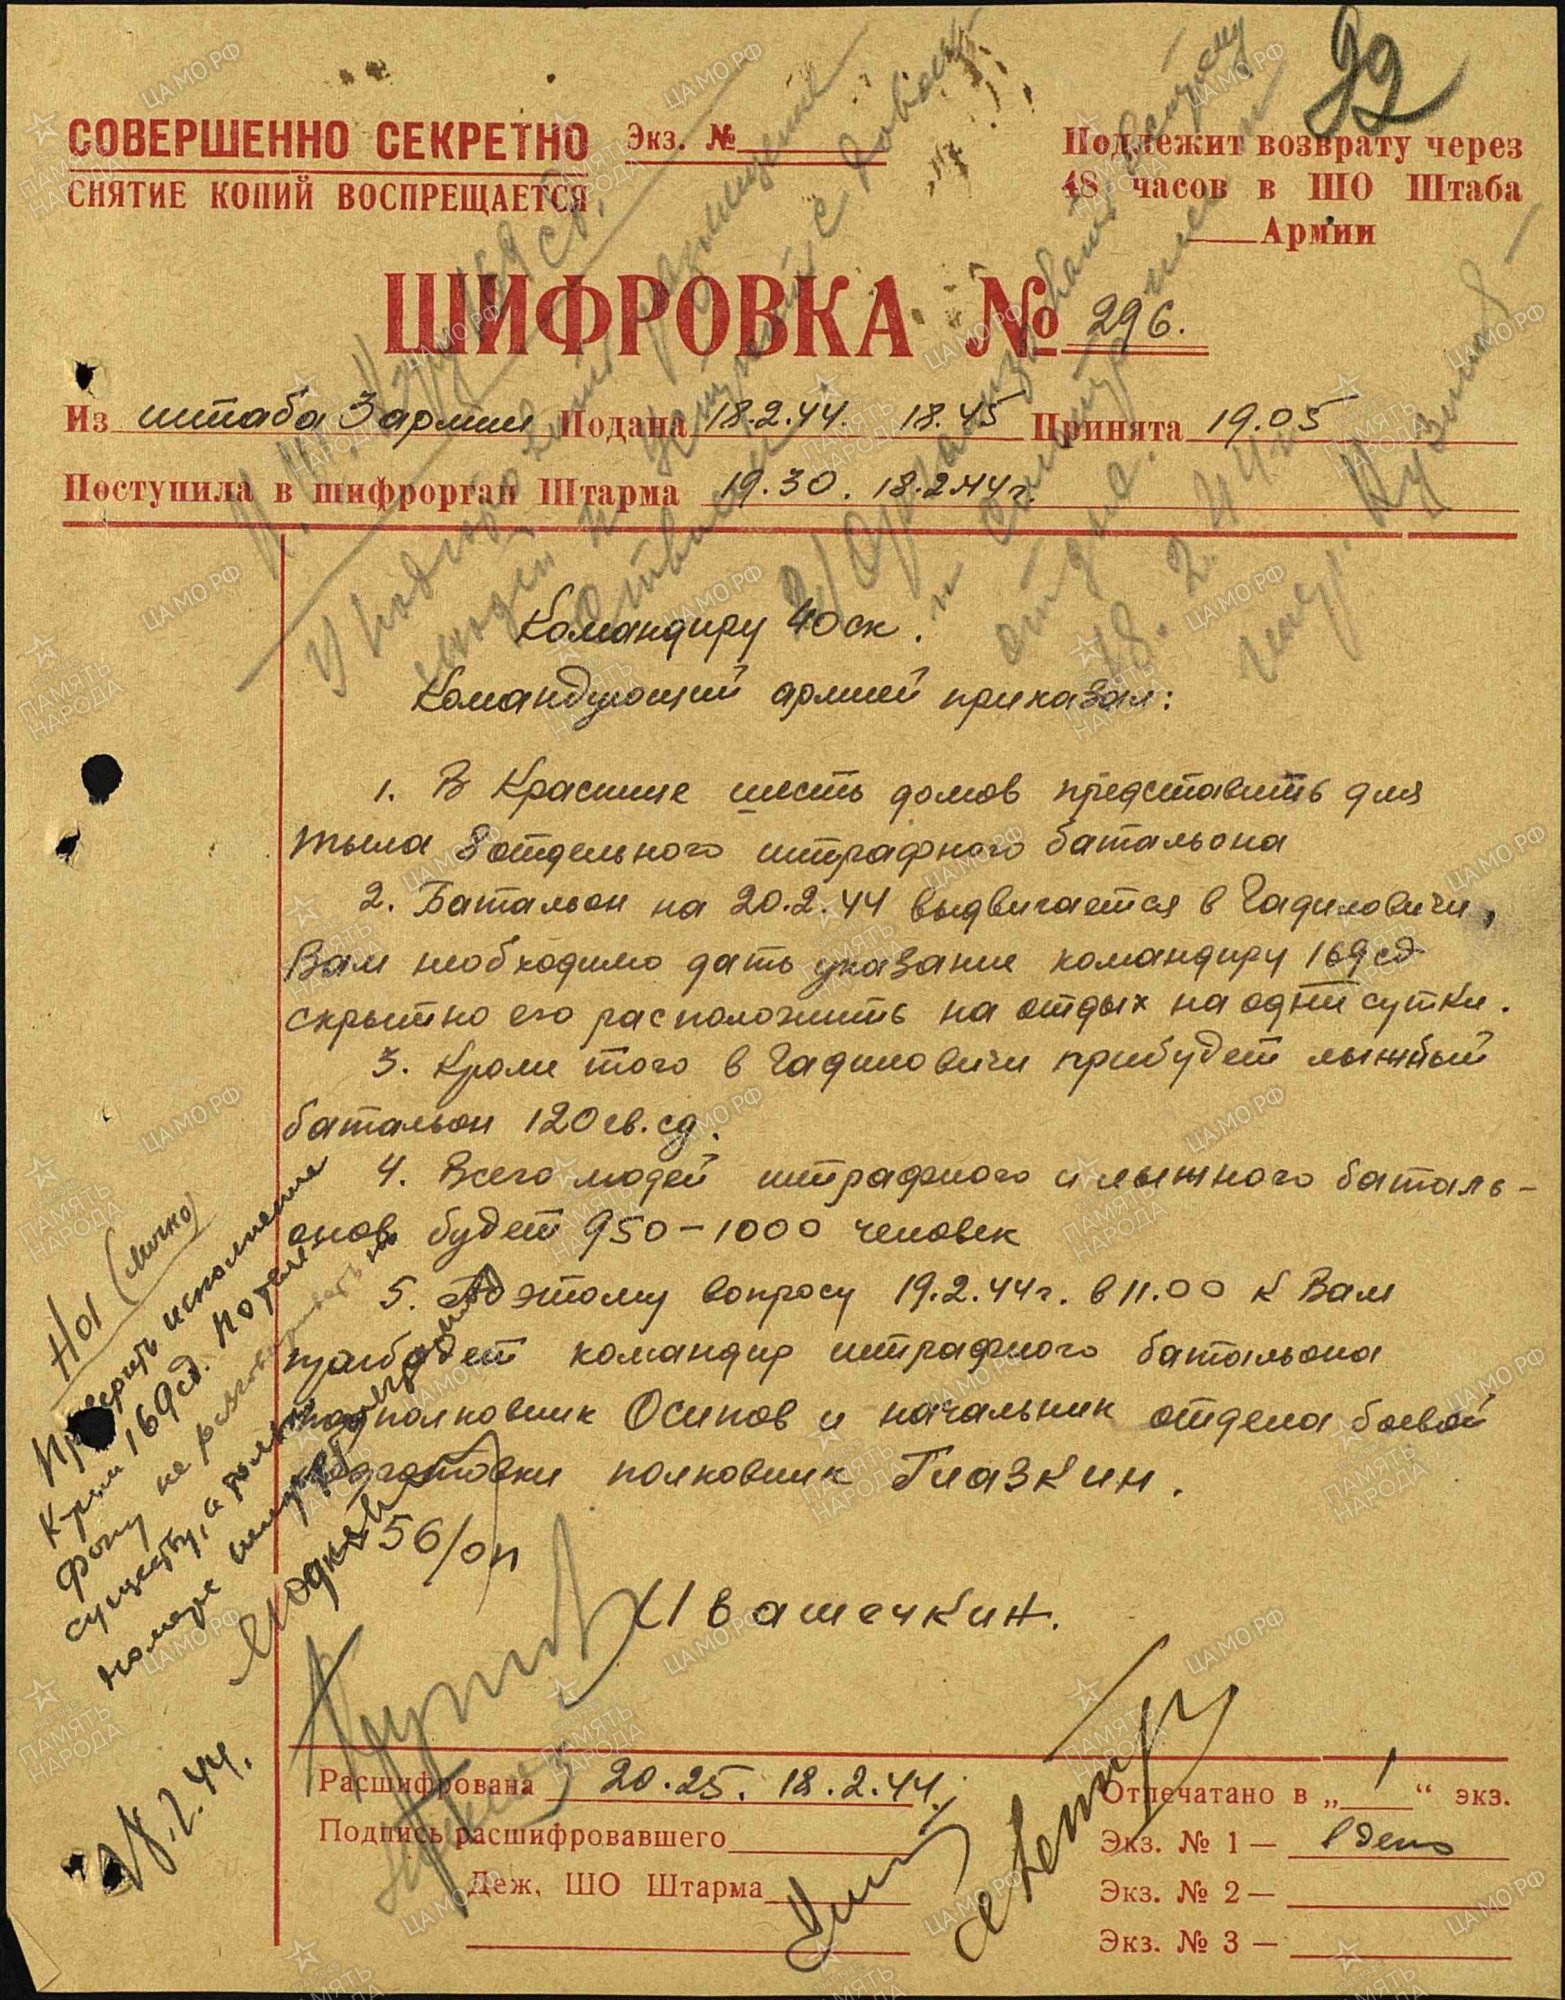 92
СОВЕРШЕННО СЕКРЕТНО
СНЯТИЕ КОПИЙ ВОСПРЕЩАЕТСЯ
Экз. №
Подлежит возврату через
48 часов в ШО Штаба
Армии
ШИФРОВКА № 296.
Из штаба 3 армии Подана 18.2.44. 18.45 Принята 19.05
Поступила в шифрорган Штарма 19.30. 18.2.44г.
Командиру 40 ск.
Командующий армией приказал:
1. В Краснице шесть домов представить для
тыла 8 отдельного штрафного батальона
2. Батальон на 20.2.44 выдвигается в Гадиловичи,
Вам необходимо дать указание командиру 169 сд
скрытно его расположить на отдых на одни сутки.
3. Кроме того в Гадиловичи прибудет лыжный
батальон 120 гв. сд.
4. Всего людей штрафного и лыжного баталь-
онов будет 950-1000 человек
5. По этому вопросу 19.2.44г. в 11.00 к Вам
прибудет командир штрафного батальона
подполковник Осипов и начальник отдела боевой
подготовки полковник Глазкин.
56/оп
Ивашечкин.
НО1 (лично)
Проверить исполнение
169 сд. По теле-
фону не разговаривать по
существу, а только
номере шифртелеграммы
18.2.44.
Расшифрована 20.25. 18.2.44г.
Подпись расшифровавшего
Деж. ШО Штарма
Отпечатано в „1“ экз.
Экз. № 1 — в дело
Экз. № 2 —
Экз. № 3 —